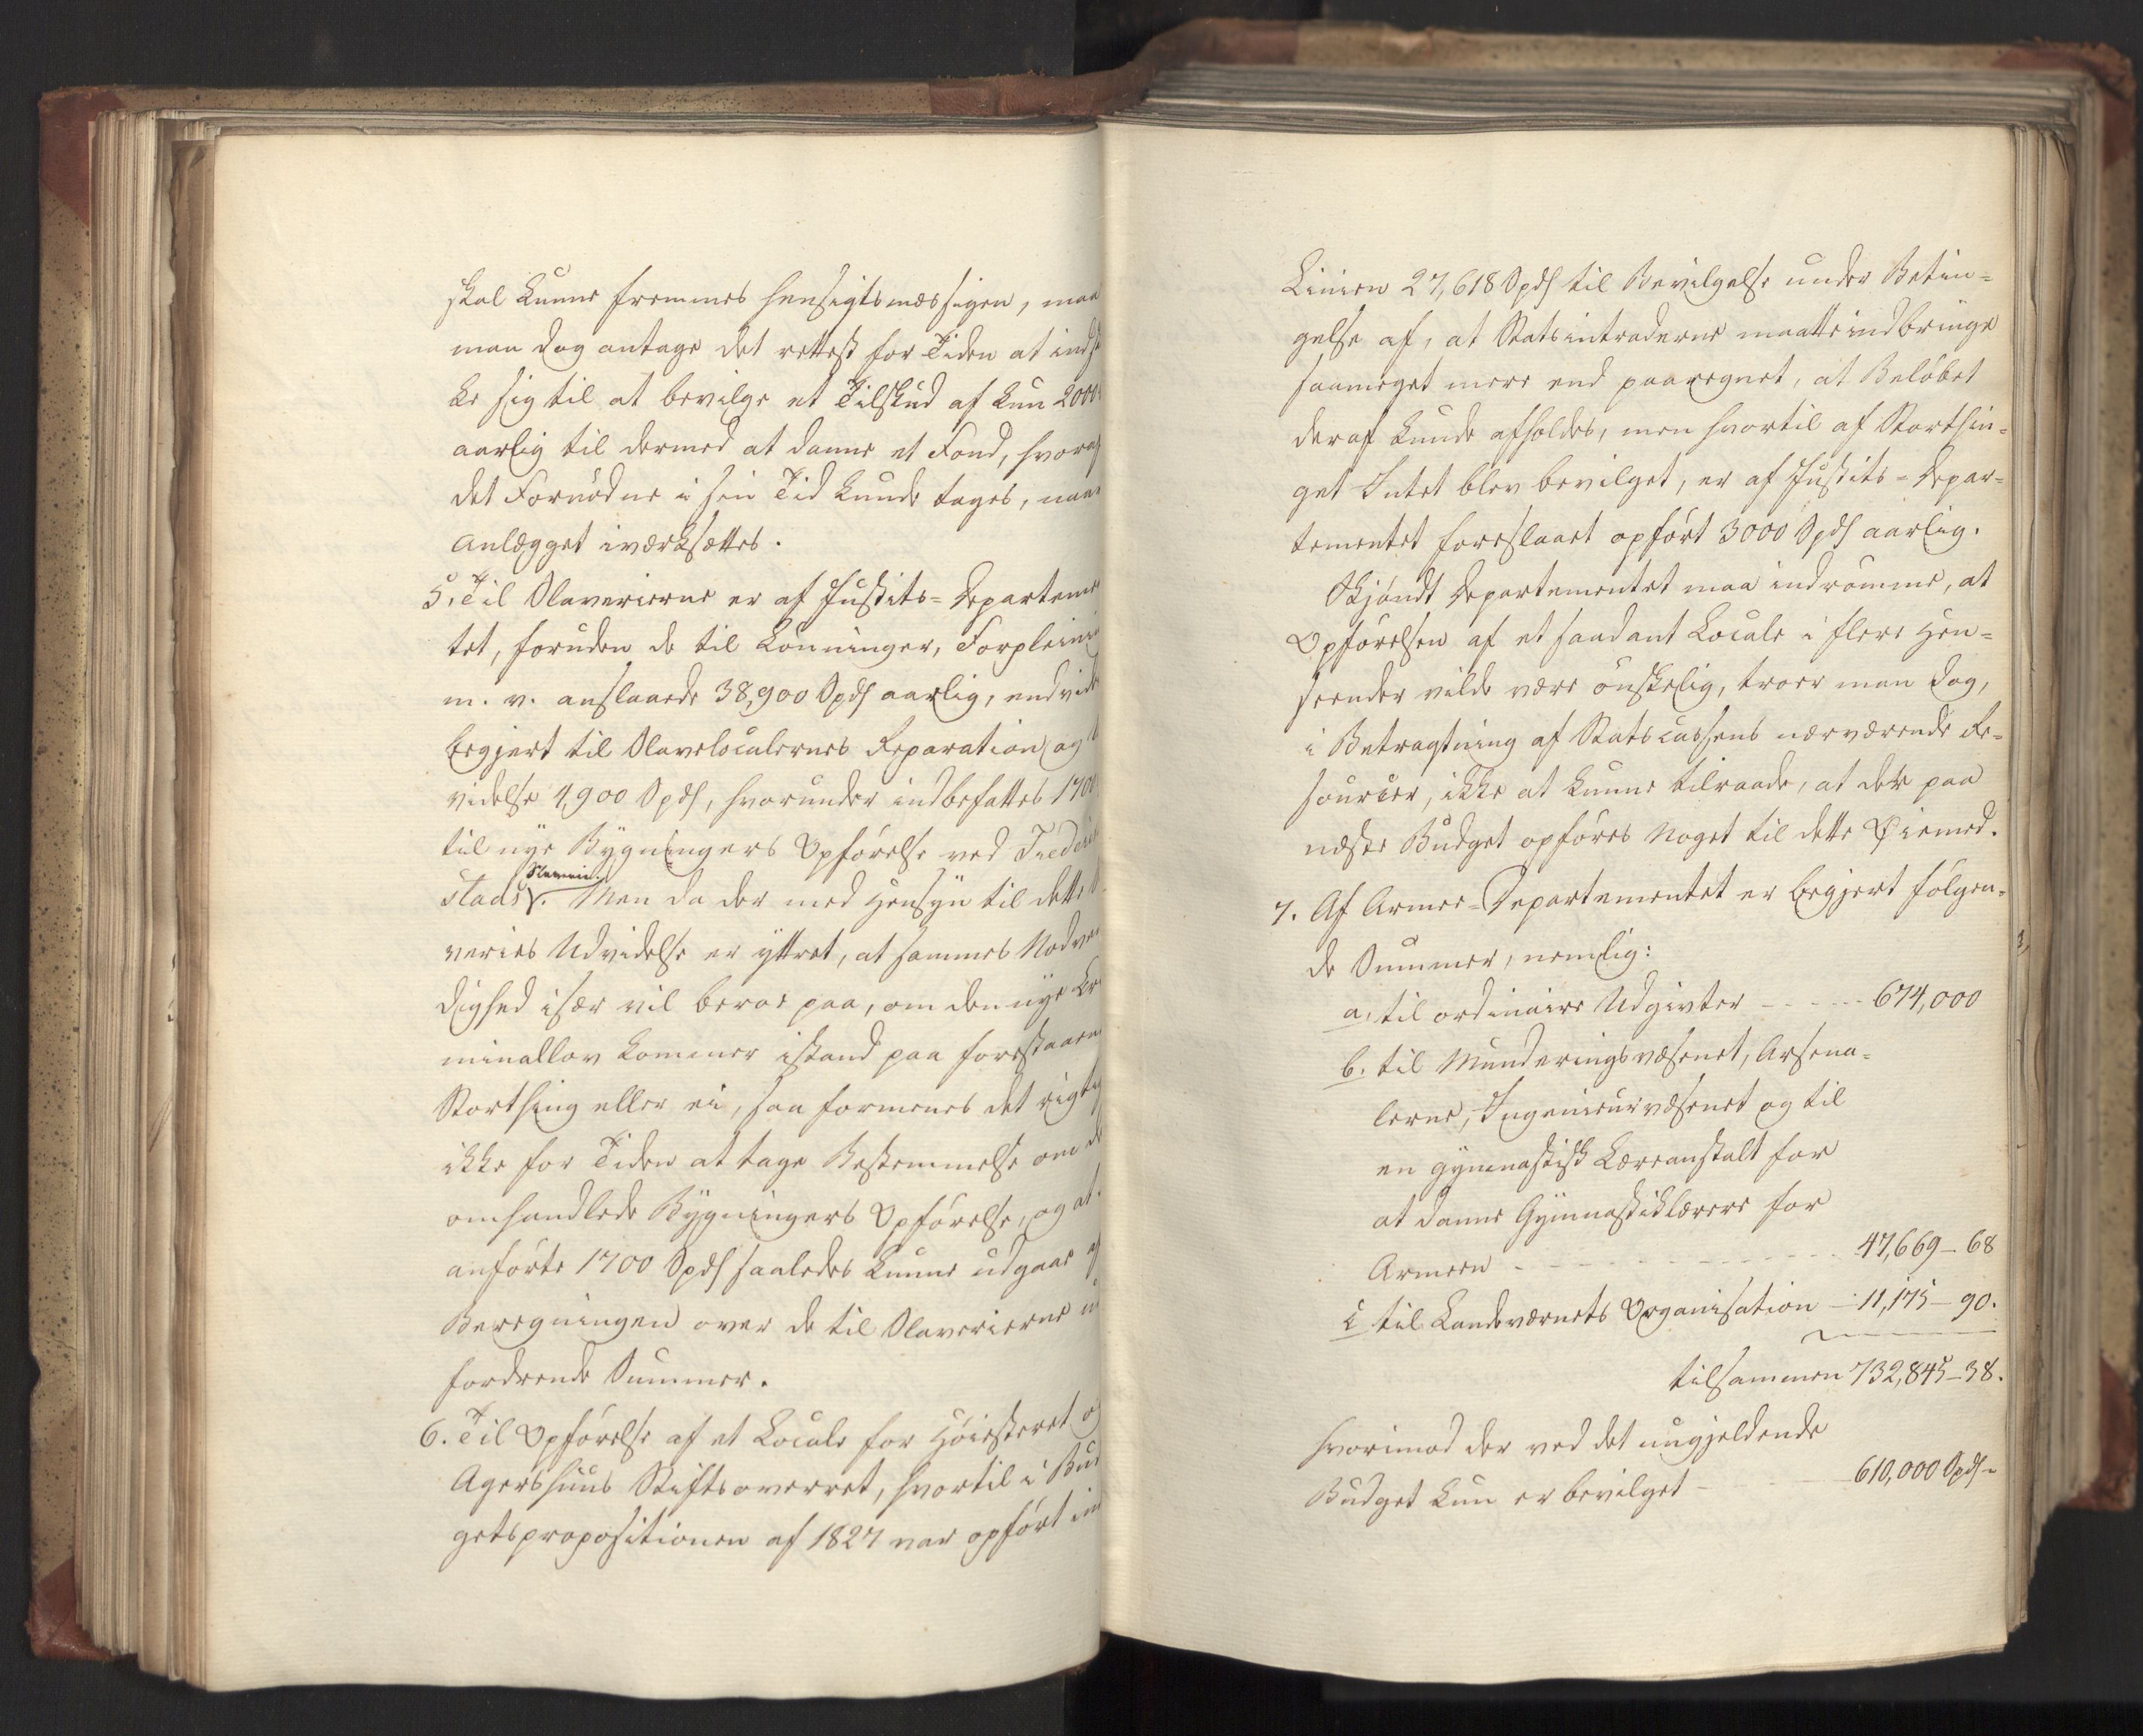 skal kunne fremmes hensigtsmæssigen, maa
man dog antage det rettest for Tiden at ind
ke sig til at bevilge et Tilskud af kun 2000
aarlig til dermed at danne et Fond, hvoraf
det Fornødne i sin Tid kunde tages, naar
Anlægget iværksættes.
5. Til Slaverierne er af Justits-Departeme
tet, foruden de til Lønninger, Forpleining
m. v. anslaaede 38,900 Spds aarlig, endvide
begjert til Slavelocalernes Reparation og
videlse 4,900 Spds, hvorunder indbefattes 1700
til nye Bygningers Opførelse ved Frederik
Slaverie.
stads. Men da der med Hensyn til dette
veries Udvidelse er yttret, at sammes Nødven
dighed især vil beroe paa, om den nye Cri
minallov kommer istand paa forestaaen
Storthing eller ei, saa formenes det rigtig
ikke for Tiden at tage Bestemmelse om de
omhandlede Bygningers Opførelse, og at
anførte 1700 Spds saaledes kunne udgaae af
Beregningen over de til Slaverierne
fordrende Summer.
6. Til Opførelse af et Locale for Høiesteret og
Agershuus Stiftsoverret, hvortil i Bud
getspropositionen af 1827 var opført in
Linien 27,618 Spds til Bevilgelse under Betin-
gelse af, at Statsintraderne maatte indbringe
saameget mere end paaregnet, at Beløbet
deraf kunde afholdes, men hvortil af Storthin-
get Intet blev bevilget, er af Justits-Depar-
tementet foreslaaet opført 3000 Spds aarlig.
Skjøndt Departementet maa indrømme, at
Opførelsen af et saadant Locale i flere Hen-
seender vilde være ønskelig, troer man dog,
i Betragtning af Statscassens nærværende Re-
sourcer, ikke at kunne tilraade, at der paa
næste Budget opføres Noget til dette Øiemed.
7. Af Armee-Departementet er begjert følgen-
de Summer, nemlig:
a, til ordinaire Udgivter - - - - 674,000
b. til Munderingsvæsenet, Arsena-
lerne, Ingenieurvæsenet og til
en gymnastisk Læreanstalt for
at danne Gymnastiklærere for
Armeen - - - - - - - - 47,669 - 68
c til Landeværnets Organisation - 11,175 - 90.
tilsammen 732,845 - 38.
hvorimod der ved det nugjeldende
Budget kun er bevilget - 610,000 Spds